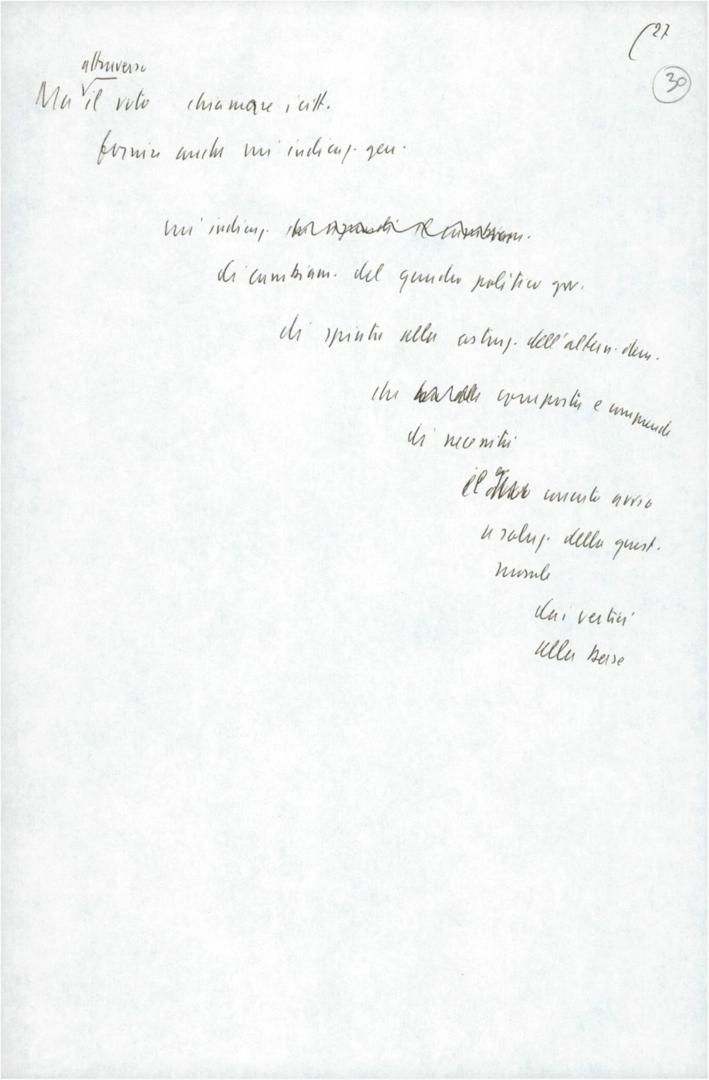 27
30
attraverso
Ma il voto chiamare i citt.
fornire anche un'indicaz. gen.
un'indicaz.
di cambiam. del quadro politico gov.
di spinta alla costruz. dell'altern. dem.
che comporta e comprende
di necessità
il concreto avvio
a soluz. della quest.
morale
dai vertici
alla base